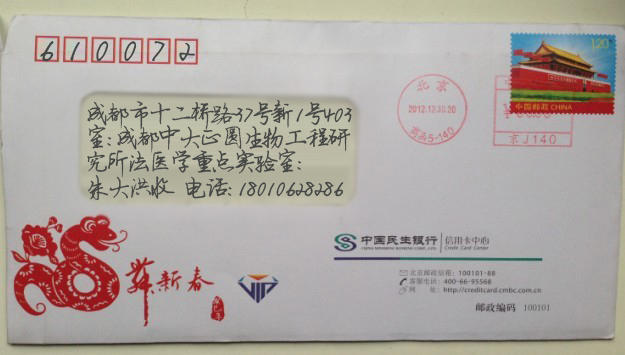 610072
120
中国邮政 CHINA
北京
2012.12.30.20
京J140
成都市十二桥路37号新1号403
室:成都中大正圆生物工程研
究所法医学重点实验室:
朱大洪收 电话:18010628286
中国民生银行 信用卡中心
CHINA MINSHENG BANKING CORP., LTD. Credit Card Center
北京邮政信箱:100101-88
客服电话:400-66-95568
网 址:http://creditcard.cmbc.com.cn
邮政编码 100101
舞新春
VIP